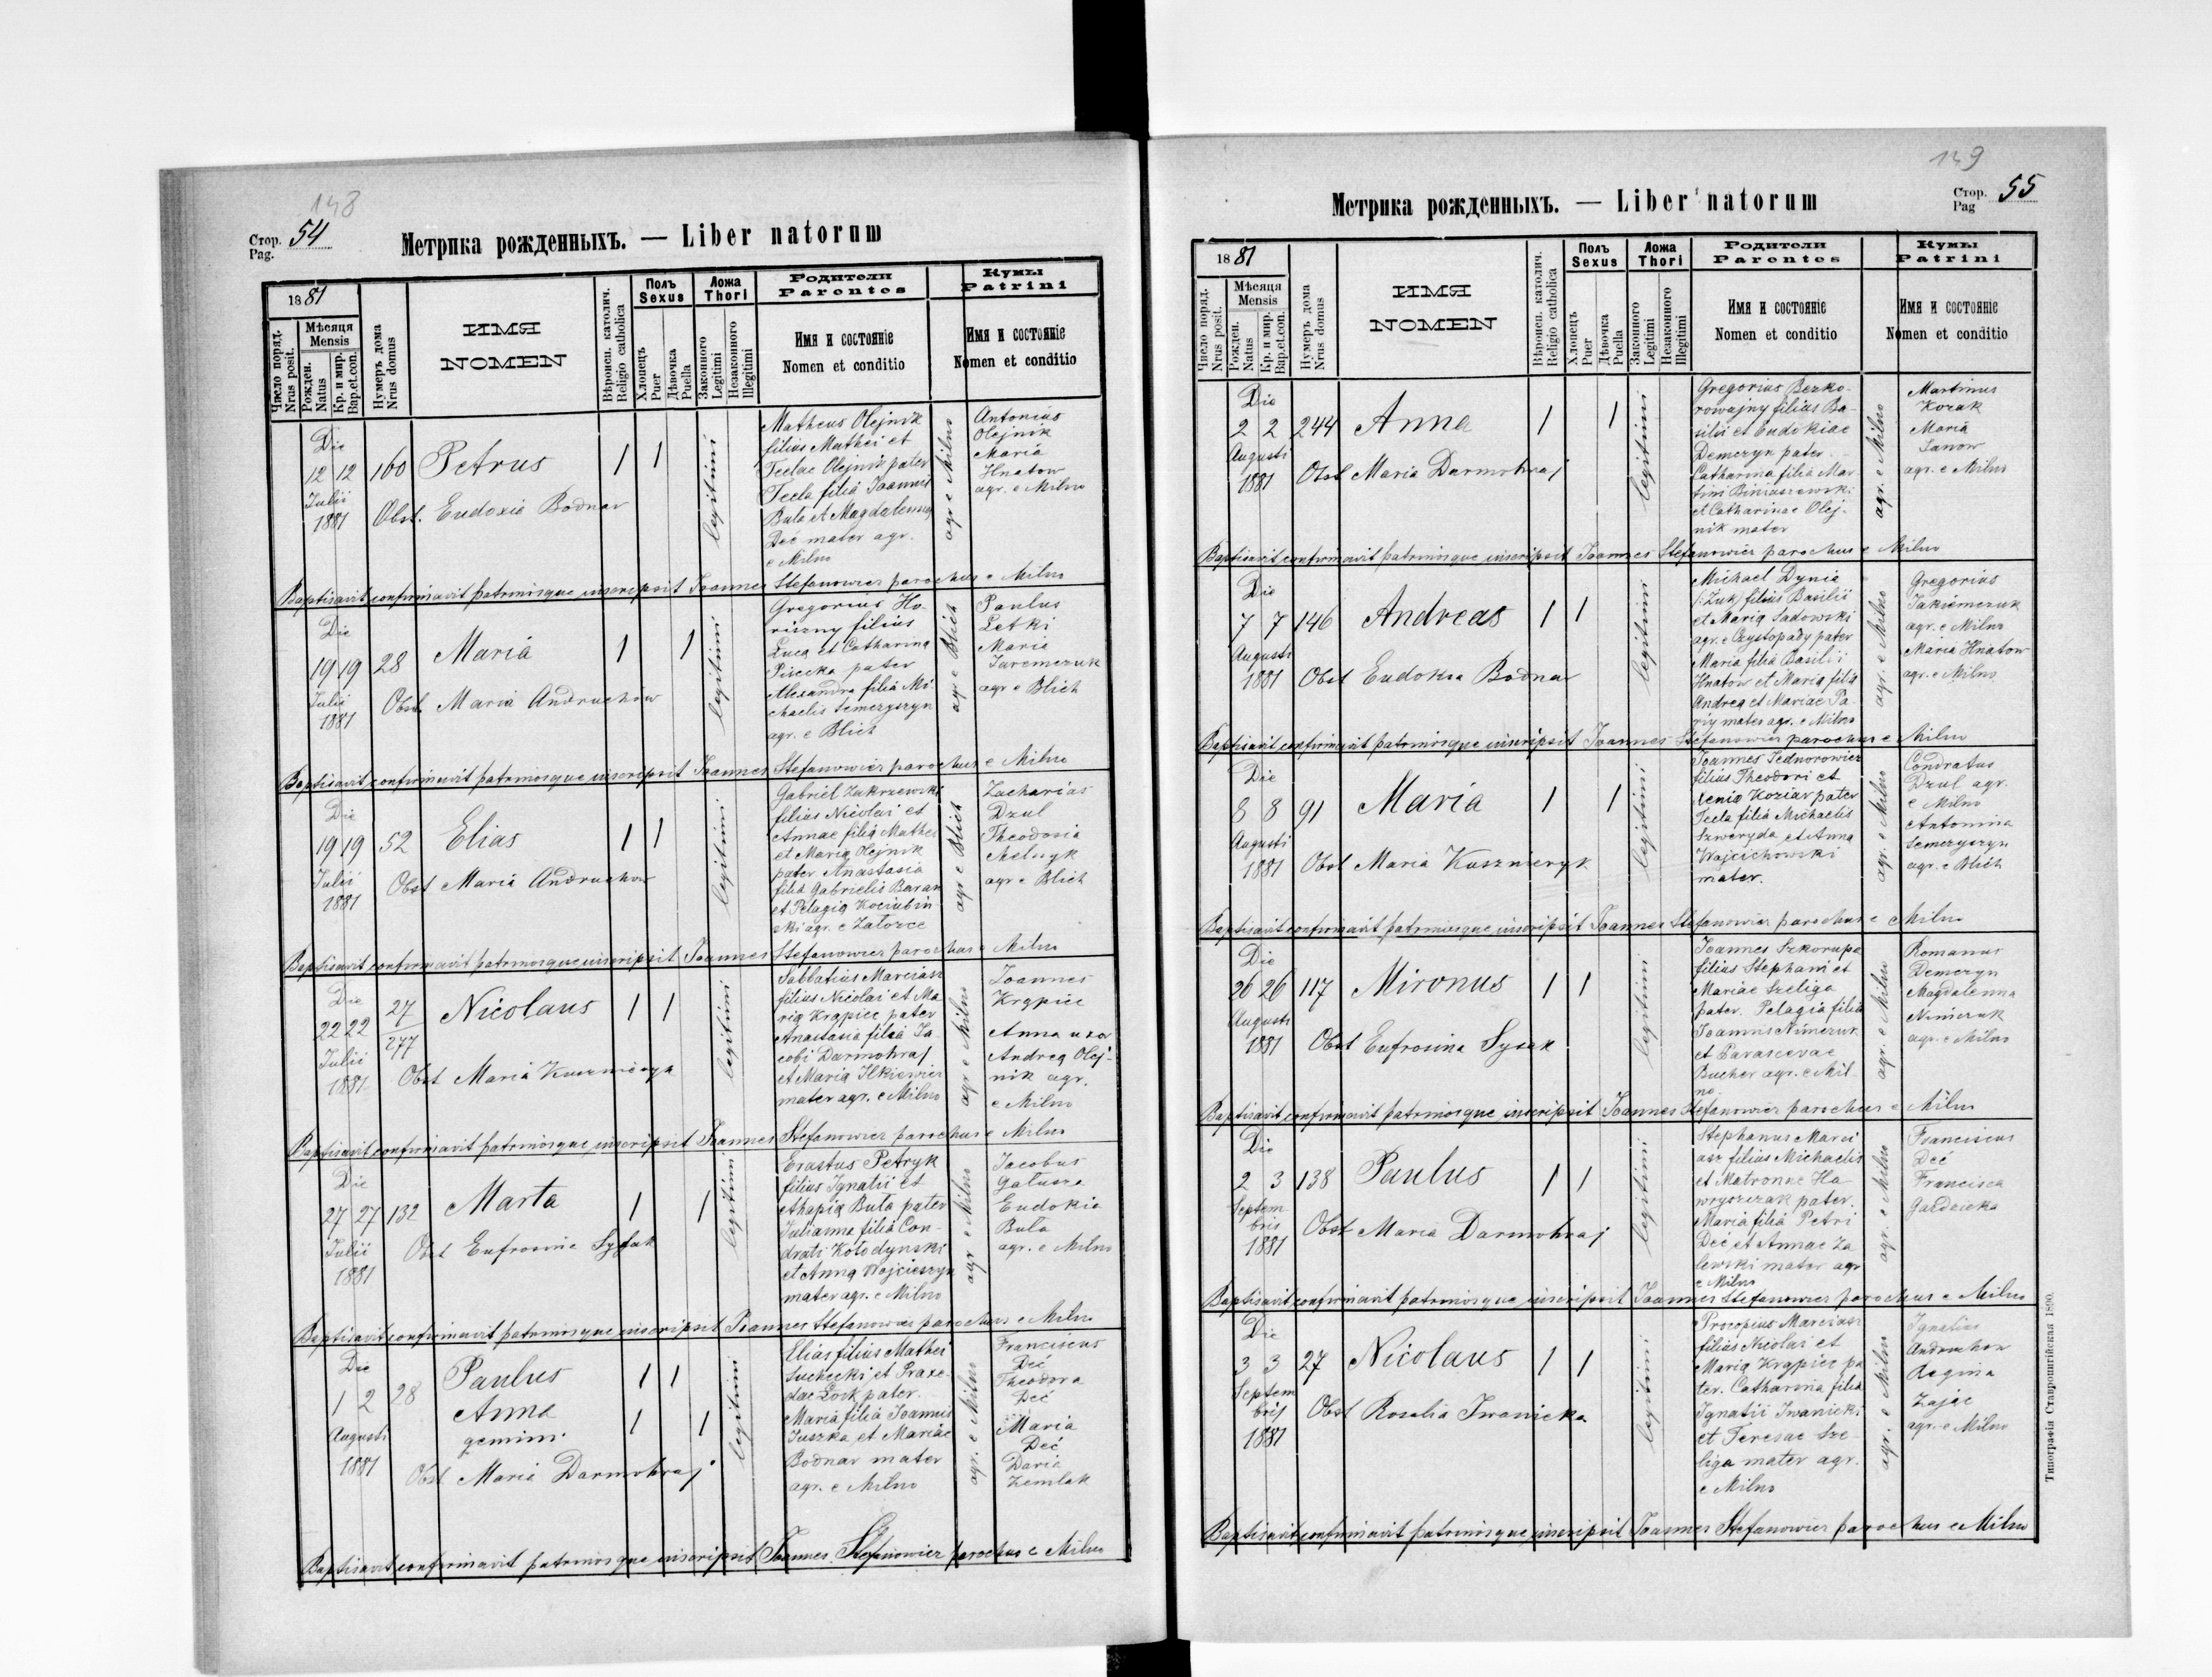 148
Стор. 54
Pag.
Метрика рожденныхъ. — Liber natorum
1881
Число поряд.
Nrus posit.
Мѣсяця
Mensis
Рожден.
Natus
Кр. и мир.
Bap.et.con.
Нумеръ дома
Nrus domus
ИМЯ
NOMEN
Вѣроисп. католич.
Religio catholica
Полъ
Sexus
Хлопецъ
Puer
Дѣвочка
Puella
Ложа
Thori
Законного
Legitimi
Незаконного
Illegitimi
Родители
Parentes
Имя и состояніе
Nomen et conditio
Кумы
Patrini
Имя и состояніе
Nomen et conditio
Die
12 12 160 Petrus 1 1
Julii
1881
Obst. Eudoxia Bodnar
legitimi
Matheus Olejnik
filius Mathei et
Teclae Olejnik pater
Tecla filia Joannis
Buta et Magdalenna
Deć mater agr.
e Milno
agr e Milno
Antonius
Olejnik
Maria
Hnatow
agr. e Milno
Baptisavit confirmavit patrinosque inscripsit Joannes Stefanowicz parochus e Milno
Die
19 19 28 Maria 1 1
Julii
1881
Obst. Maria Andruchow
legitimi
Gregorius Ho-
rizny filius
Luca et Catharina
Pisecka pater
Alexandra filia Mi-
chaelis Semezyszyn
agr. e Blich
agr e Blich
Paulus
Letki
Maria
Jaremczuk
agr e Blich
Baptisavit confirmavit patrinosque inscripsit Joannes Stefanowicz parochus e Milno
Die
19 19 52 Elias 1 1
Julii
1881
Obst Maria Andruchow
legitimi
Gabriel Zakrzewski
filius Nicolai et
Annae filia Mathei
et Maria Olejnik
pater Anastasia
filia Gabrielis Baran
et Pelagia Kociubin
ski agr. e Zatorce
agr e Blich
Zacharias
Dzul
Theodosia
Melnyk
agr e Blich
Baptisavit confirmavit patrinosque inscripsit Joannes Stefanowicz parochus e Milno
Die
22 22 27/277 Nicolaus 1 1
Julii
1881
Obst Maria Kusznieryk
legitimi
Sabbatius Marciasz
filius Nicolai et Ma
ria Krąpiec pater
Anastasia filia Ja
cobi Darmohraj
et Maria Ilkiewicz
mater agr. e Milno
agr e Milno
Joannes
Krąpiec
Anna uxor
Andrea Olej-
nik agr.
e Milno
Baptisavit confirmavit patrinosque inscripsit Joannes Stefanowicz parochus e Milno
Die
27 27 132 Marta 1 1
Julii
1881
Obst Eufrosine Sysak
legitimi
Erastus Petryk
filius Ignatii et
Ahapia Buta pater
Julianna filia Con-
drati Kołodynski
et Anna Wojcieszyn
mater agr. e Milno
agr e Milno
Jacobus
Gałusza
Eudokia
Buła
agr. e Milno
Baptisavit confirmavit patrinosque inscripsit Joannes Stefanowicz parochus e Milno
Die
1 2 28 Paulus 1 1
Anna 1 1
gemini
Augusti
1881
Obst Maria Darmohraj
legitimi
Elias filius Mathei
Suchecki et Praxe-
dae Łoik pater.
Maria filia Joannis
Juszka et Mariae
Bodnar mater
agr. e Milno
agr. e Milno
Franciscus
Deć
Theodora
Deć
Maria
Deć
Daria
Zemlak
Baptisavit confirmavit patrinosque inscripsit Joannes Stefanowicz parochus e Milno
149
Метрика рожденныхъ. — Liber natorum
Стор. 55
Pag
1881
Число поряд.
Nrus posit.
Мѣсяця
Mensis
Рожден.
Natus
Кр. и мир.
Bap.et.con.
Нумеръ дома
Nrus domus
ИМЯ
NOMEN
Вѣроисп. католич.
Religio catholica
Полъ
Sexus
Хлопецъ
Puer
Дѣвочка
Puella
Ложа
Thori
Законного
Legitimi
Незаконного
Illegitimi
Родители
Parentes
Имя и состояніе
Nomen et conditio
Кумы
Patrini
Имя и состояніе
Nomen et conditio
Die
2 2 244 Anna 1 1
Augusti
1881
Obst Maria Darmohraj
legitimi
Gregorius Bezko-
rowajny filius Ba-
silii et Eudokiae
Demczyn pater.
Catharina filia Mar
tini Biniaszewski
et Catharinae Olej-
nik mater
agr. e Milno
Martinus
Kozak
Maria
Janow
agr. e Milno
Baptisavit confirmavit patrinosque inscripsit Joannes Stefanowicz parochus e Milno
Die
7 7 146 Andreas 1 1
Augusti
1881
Obst Eudokia Bodnar
legitimi
Michael Dynia
/:Zuk/ filius Basilii
et Maria Sadowski
agr. e Czystopady pater
Maria filia Basilii
Hnatow et Maria filia
Andrea et Mariae Pa-
ziy mater agr. e Milno
agr. e Milno
Gregorius
Jakiemczuk
agr. e Milno
Maria Hnatow
agr. e Milno
Baptisavit confirmavit patrinosque inscripsit Joannes Stefanowicz parochus e Milno
Die
8 8 91 Maria 1 1
Augusti
1881
Obst Maria Kusznieryk
legitimi
Joannes Fednorowicz
filius Theodori et
Xenia Koziar pater
Tecla filia Michaelis
Szweryda et Anna
Wojcichowski
mater.
agr. e Milno
Condratus
Dzul agr.
e Milno
Antonina
Semezyszyn
agr. e Blich
Baptisavit confirmavit patrinosque inscripsit Joannes Stefanowicz parochus e Milno
Die
26 26 117 Mironus 1 1
Augusti
1881
Obst Eufrosina Sysak
legitimi
Joannes Szkorupa
filius Stephani et
Mariae Szeliga
pater. Pelagia filia
Joannis Nimczuk
et Parascevae
Bucher agr. e Mil-
no
agr. e Milno
Romanus
Demczyn
Magdalenna
Nimczuk
agr. e Milno
Baptisavit confirmavit patrinosque inscripsit Joannes Stefanowicz parochus e Milno
Die
2 3 138 Paulus 1 1
Septem-
bris
1881
Obst Maria Darmohraj
legitimi
Stephanus Marci
asz filius Michaelis
et Matronae Ha
wryszczak pater.
Maria filia Petri
Deć et Annae Za
lewski mater agr
e Milno
agr. e Milno
Franciscus
Deć
Francisca
Gazdzicka
Baptisavit confirmavit patrinosque inscripsit Joannes Stefanowicz parochus e Milno
Die
3 3 27 Nicolaus 1 1
Septem
bris
1881
Obst Rosalia Iwanicka
legitimi
Procopius Marciasz
filius Nicolai et
Maria Krąpiec pa
ter. Catharina filia
Ignatii Iwanicki
et Teresae Sze-
liga mater agr.
e Milno
agr. e Milno
Ignatius
Andruchow
Regina
Zając
agr. e Milno
Baptisavit confirmavit patrinosque inscripsit Joannes Stefanowicz parochus e Milno
Типографія Ставропигійская 1890.